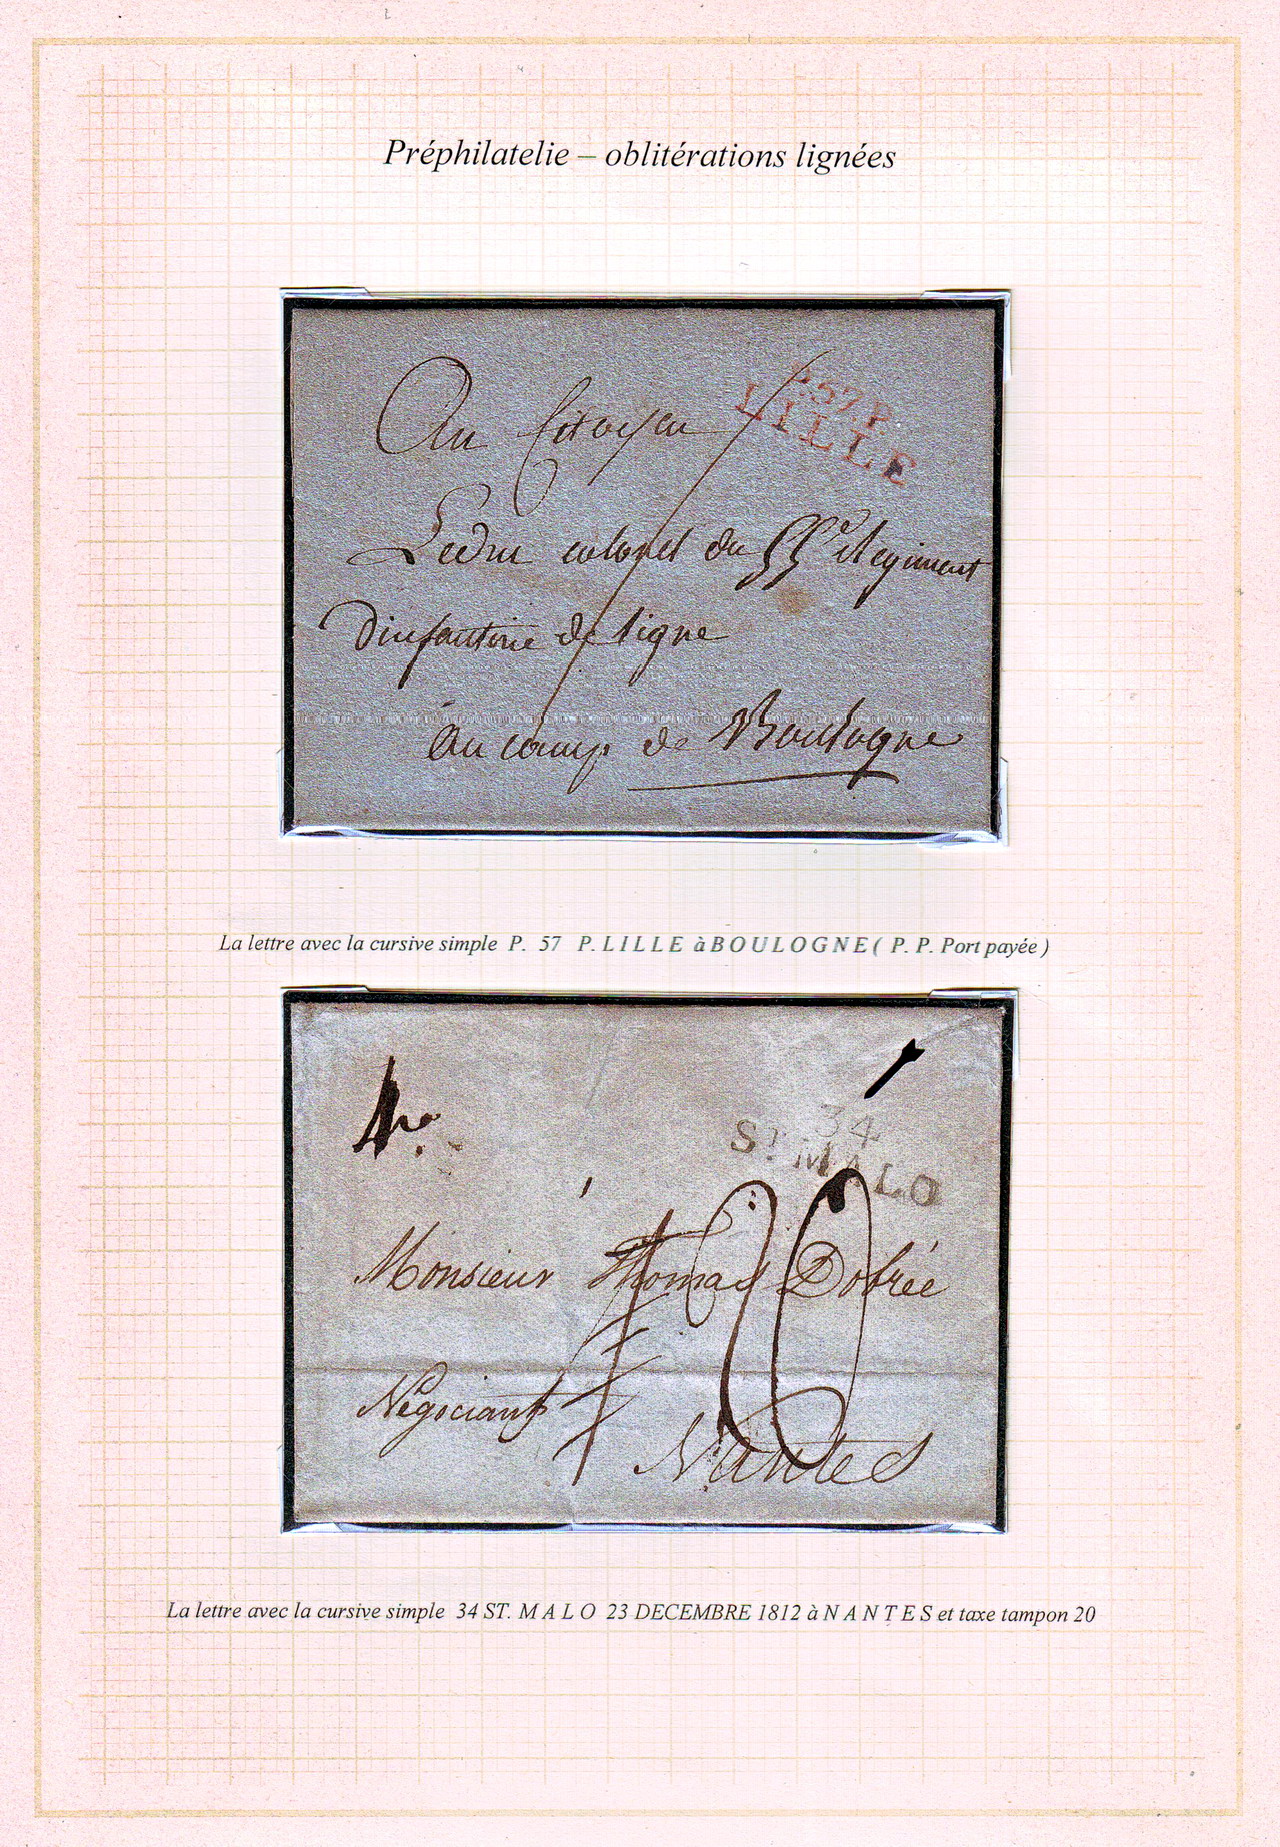 Préphilatelie – oblitérations lignées
P.57.P.
LILLE
Au Citoyen
Ledru colonel du 55e Regiment
Dinfanterie de ligne
au camp de Boulogne
La lettre avec la cursive simple P. 57 P. LILLE à BOULOGNE ( P. P. Port payée )
34
ST MALO
20
Monsieur Thomas Dobrée
Négociant
Nantes
La lettre avec la cursive simple 34 ST. MALO 23 DECEMBRE 1812 à NANTES et taxe tampon 20